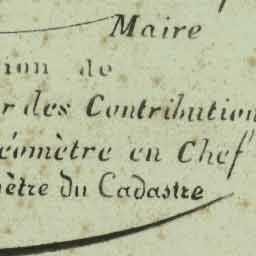 Maire
ion de
r des Contribution
éomètre en Chef
ètre du Cadastre